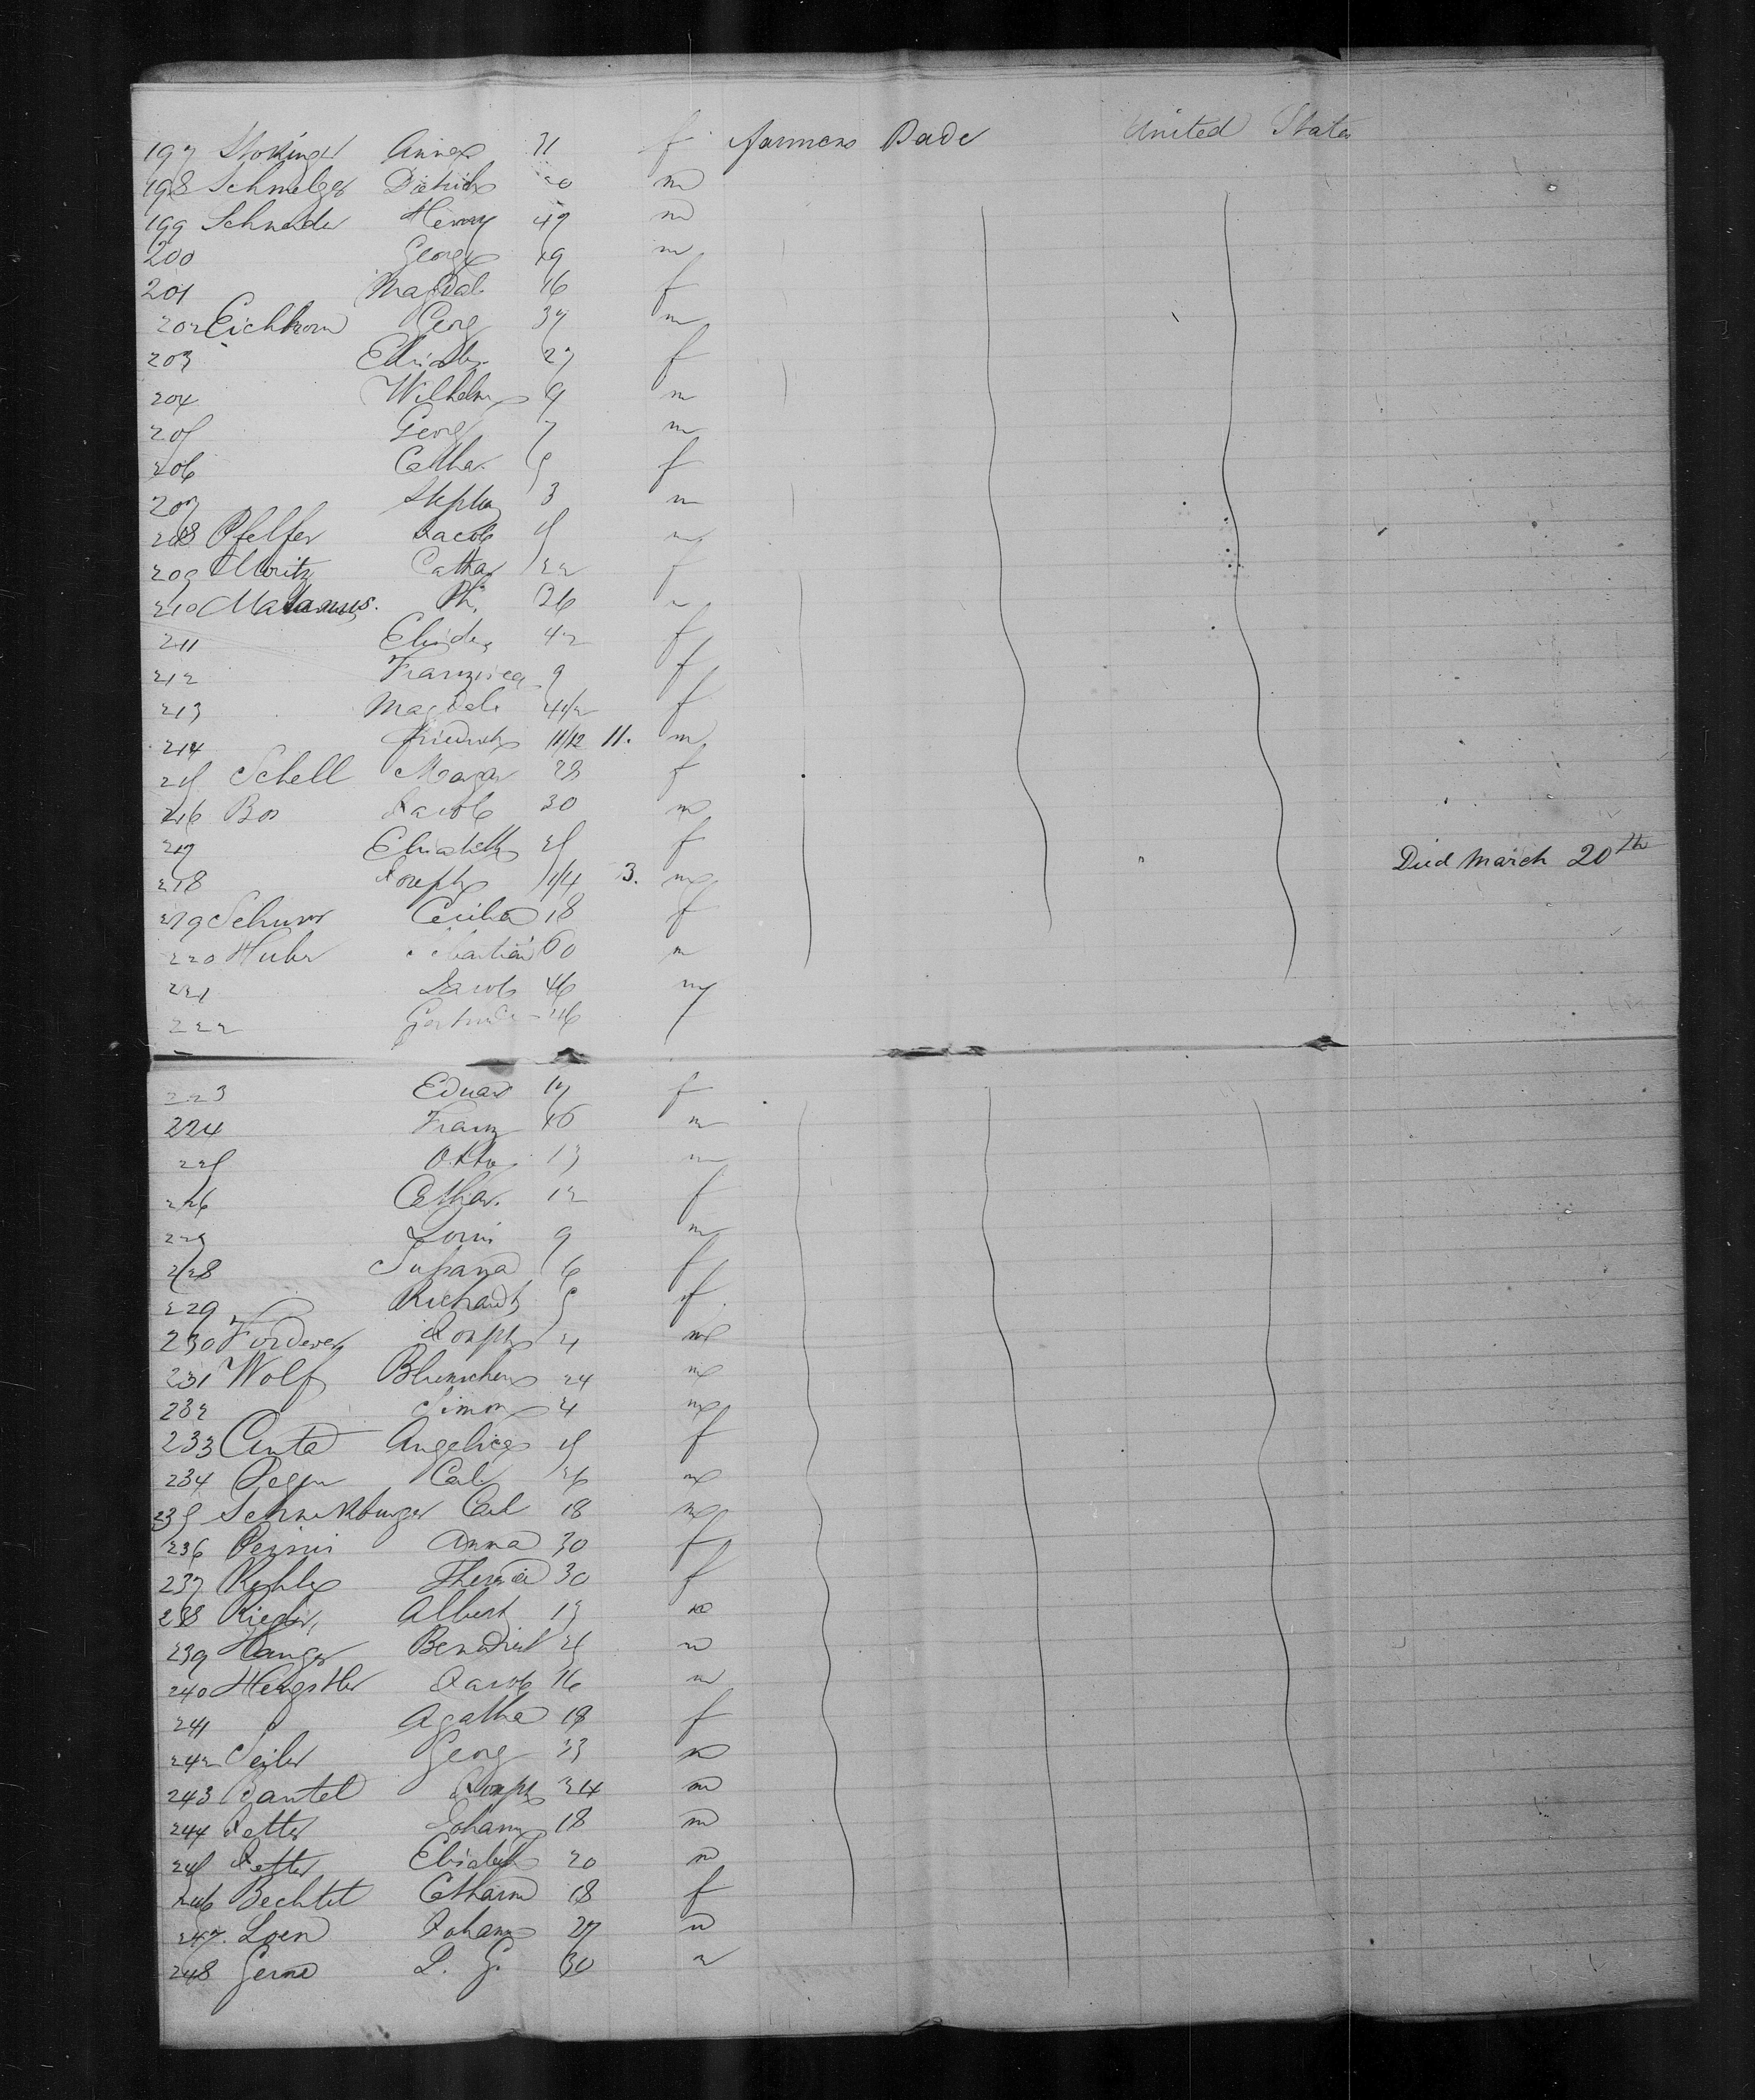 197 Stokinger Anna 31 f farmers Bade United States
198 Schmelzer Dietrich 20 m
199 Schneider Henry 49 m
200 Georg 19 m
201 Magdal 16 f
202 Eichhorn Georg 37 m
203 Elisab. 27 f
204 Wilhelm 9 m
205 Georg 7 m
206 Catha. 5 f
207 Stephan 3 m
208 Pfeifer Jacob m
209 Moritz Cathar 22 f
210 Ph. 26
211 Elisab. 42 f
212 Franzisca 9 f
213 Magdal 4 1/2 f
214 Friedrich 11/12 11. m
215 Schell Marga 28 f
216 Bos Jacob 30 m
217 Elisabeth 25 f
218 Joseph 1/4 3. m Died March 20th
219 Cecilia 18 f
220 Huber 60 m
221 Jacob 46 m
222 Gertrude 46 f
223 Eduard 17 f
224 Franz 16 m
225 Otto 13 m
226 Cathar. 12 f
227 Louis 9 m
228 Susana 6 f
229 Richard 5
230 Forderer Joseph 24 m
231 Wolf 24 m
232 Simon 4 m
233 Angelica 25 f
234 Carl 26 m
235 Schnekburger Carl 18 m
236 Anna 30 f
237 Theresia 30 f
238 Albert 13 m
239 Benedict 25 m
240 Hengstler Jacob 16 m
241 Agatha 18 f
242 Seiler Georg 33 m
243 Bantel Joseph 24 m
244 Jetter Johann 18 m
245 Jetter Elisabeth 20 m
246 Bechtel Catharina 18 f
247. Johann 27 m
248 L. G. 30 m